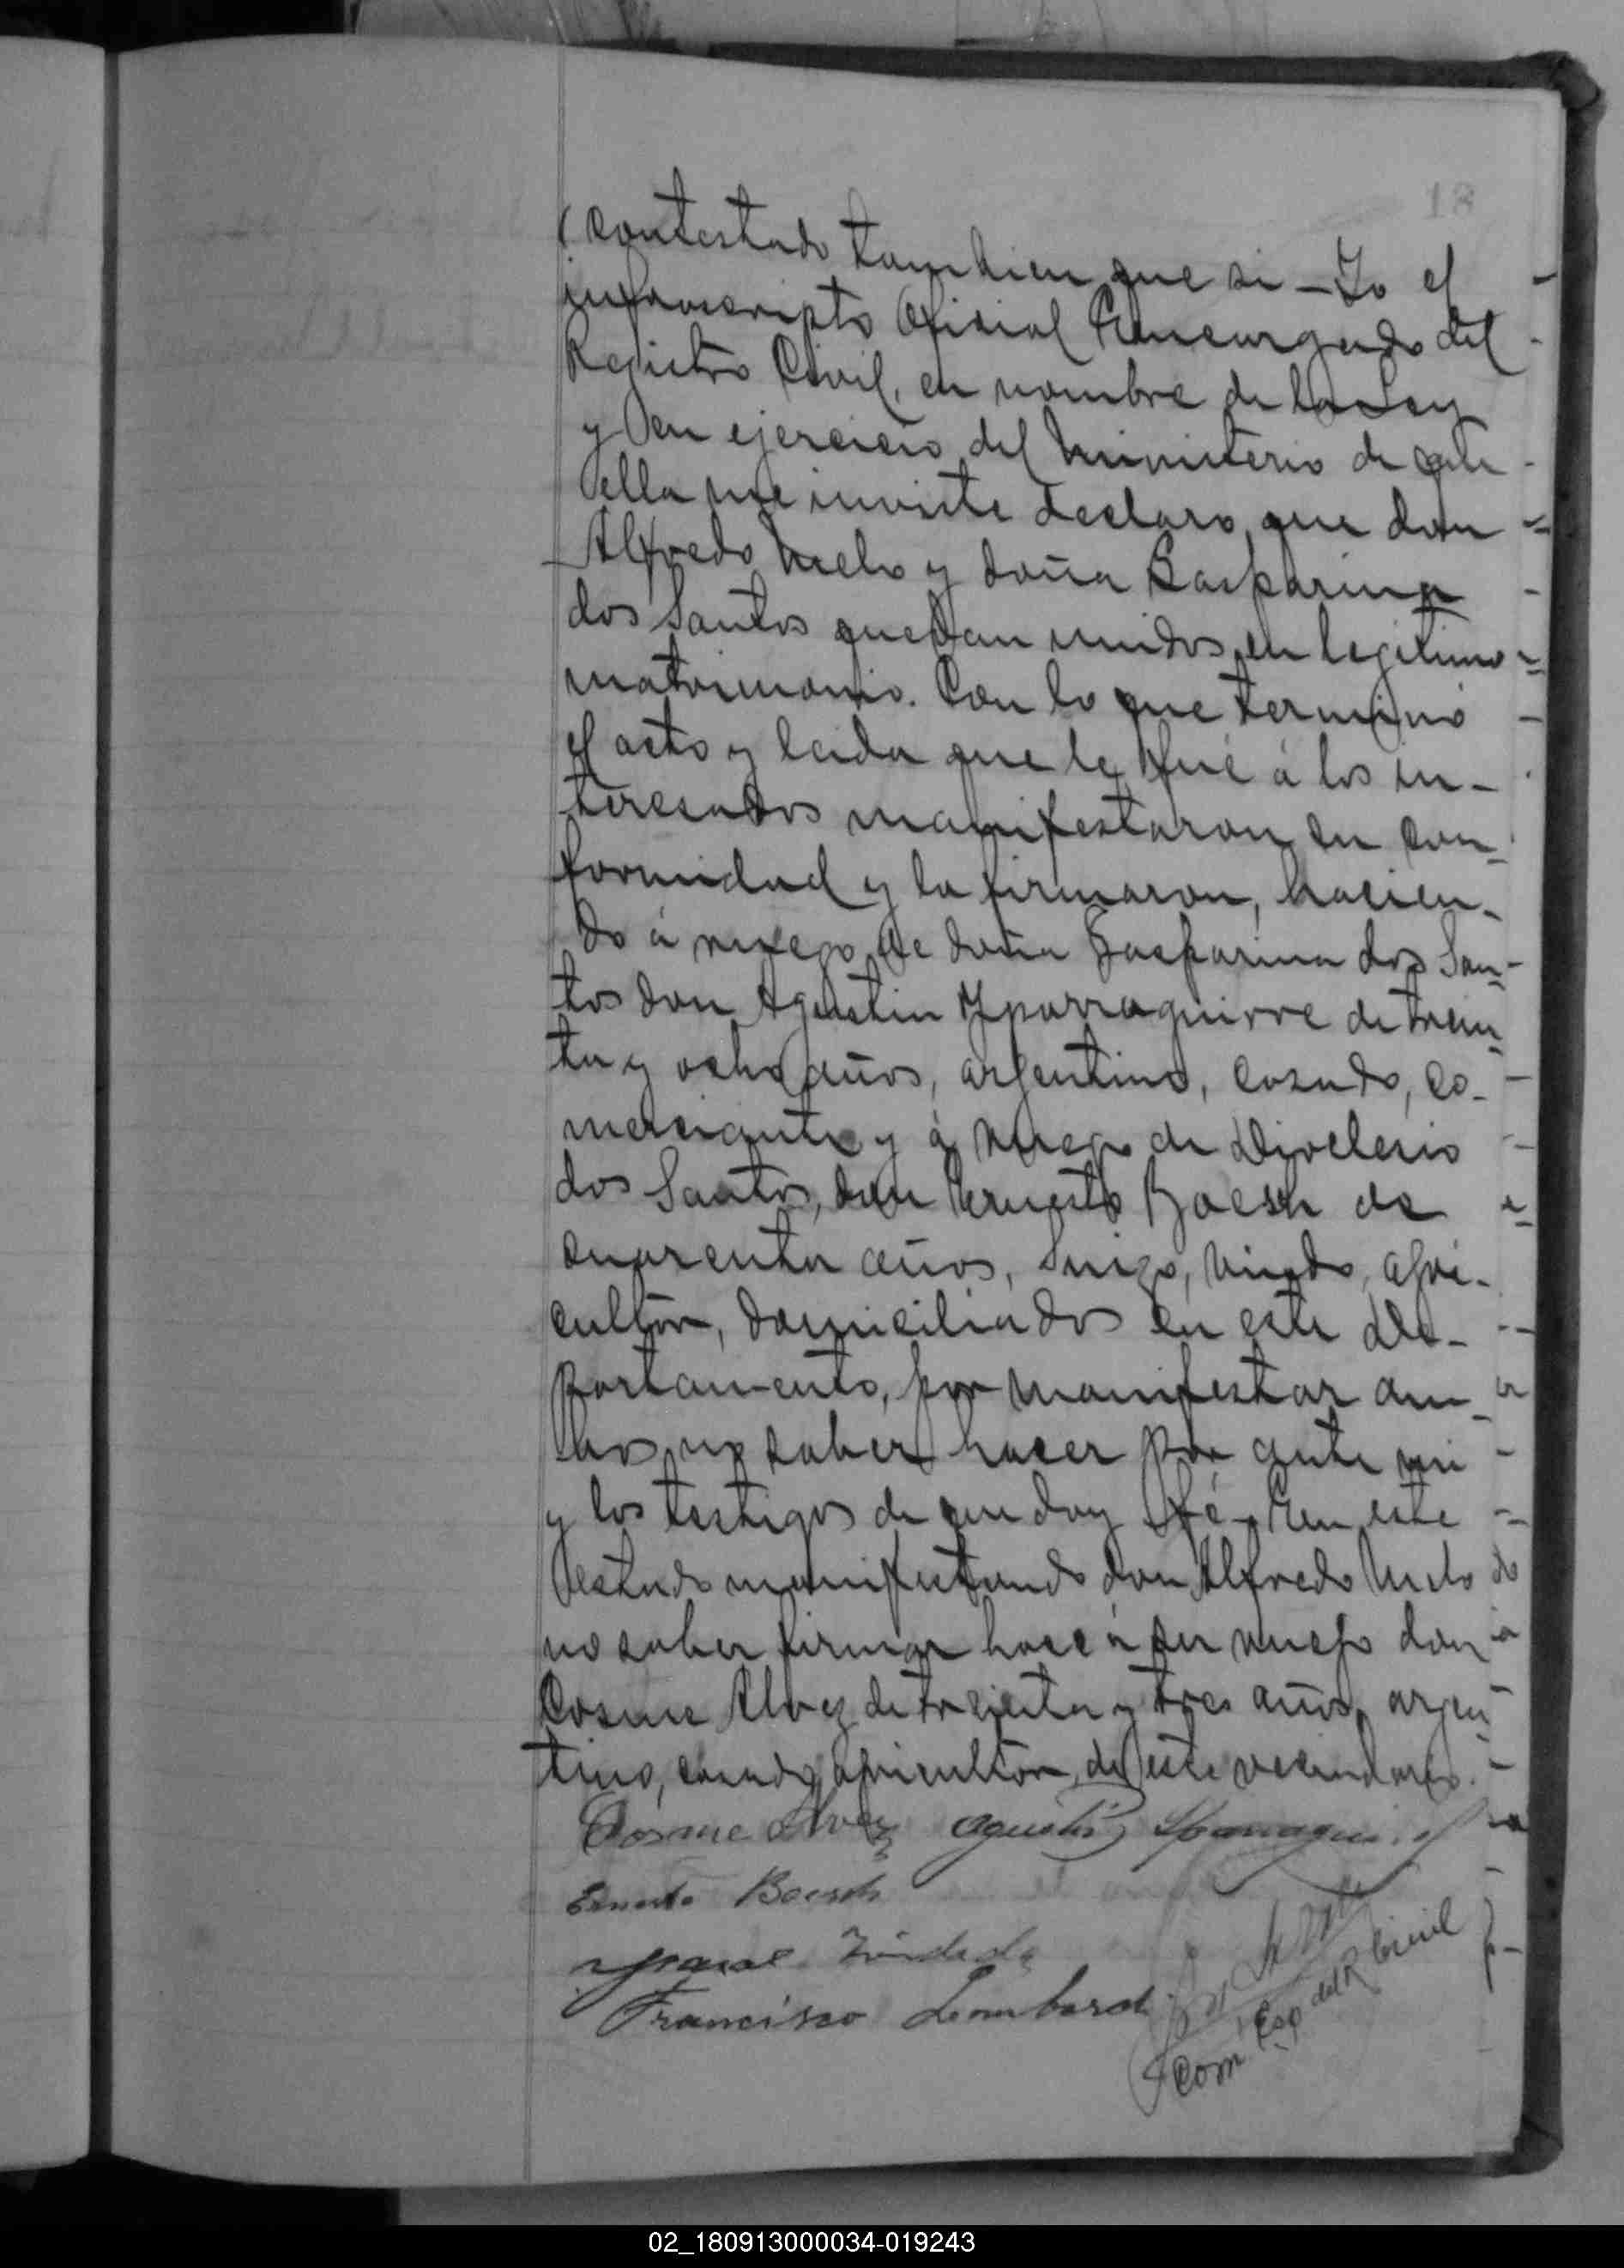 18
contestado tambien que si – Yo el
infrascripto Oficial Encargado del
Registro Civil, en nombre de la Ley
y en ejercicio del ministerio de que
ella me inviste declaro que don
Alfredo Melo y doña Gasparina
dos Santos quedan unidos en legitimo
matrimonio. Con lo que terminó
el acto y leida que le fué á los in-
teresados manifestaron su con-
formidad y la firmaron, hacien-
do á ruego de doña Gasparina dos San-
tos don Agustin Yparraguirre de trein-
ta y ocho años, argentino, casado, co-
merciante y á ruego de Dioclesio
dos Santos, don Ernesto Boesch de
cuarenta años, Suizo, viudo, agri-
cultor, domiciliados en este De-
partamento, por manifestar am-
bos no saber hacer por ante mi
y los testigos de que doy fé – En este
estado manifestando don Alfredo Melo
no saber firmar hace á su ruego don
Cosme Alvez de treinta y tres años, argen-
tino, casado, agricultor, de este vecindario.
Cosme Alvez Agustin Yparraguirre
Ernesto Boesch
Trindade
Francisco Lombardi
Com Esp del R Civil
02_180913000034-019243